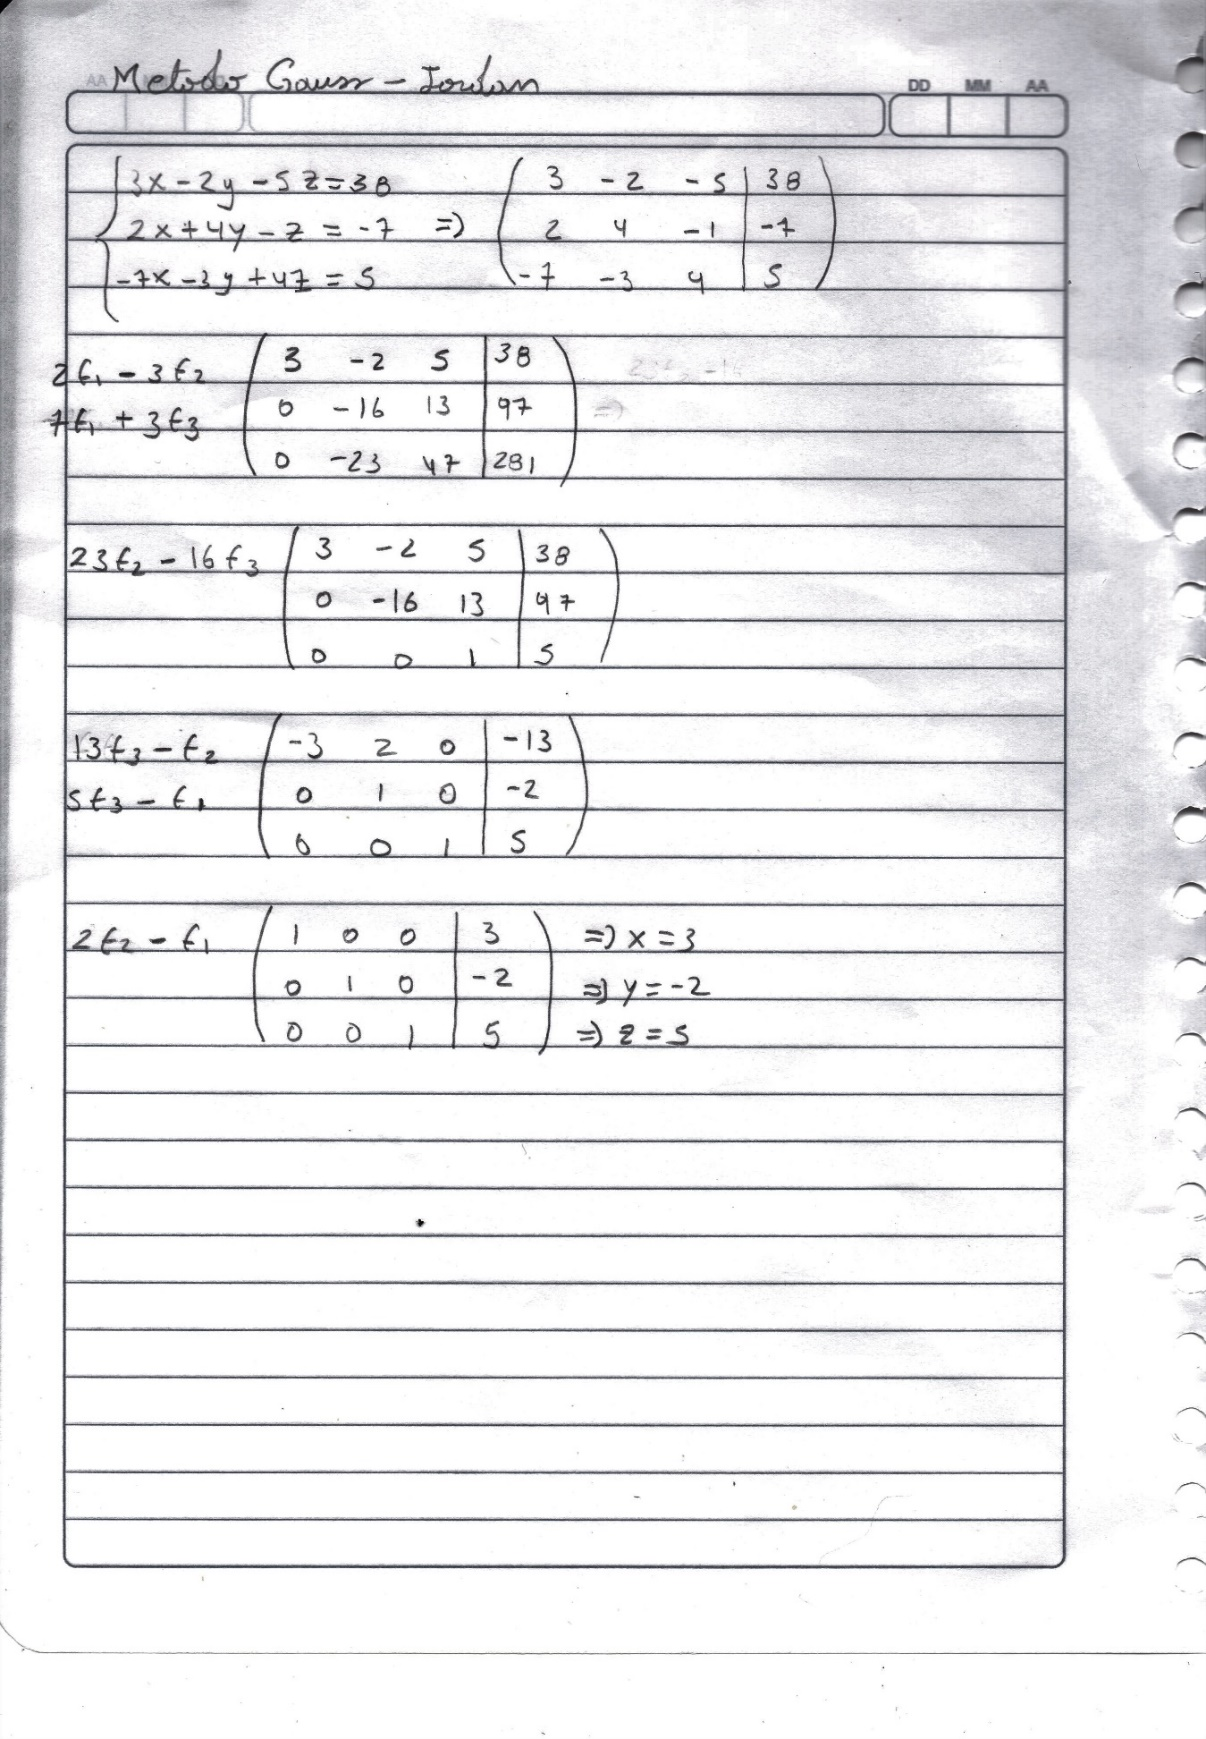 Metodo Gauss - Jordan
AA
DD MM AA
3x - 2y - 5z = 38
2x + 4y - z = -7 =>
-7x - 3y + 4z = 5
3 -2 -5 | 38
2 4 -1 | -7
-7 -3 4 | 5
2f1 - 3f2
7f1 + 3f3
3 -2 5 | 38
0 -16 13 | 97 =>
0 -23 47 | 281
23f2 - 16f3
3 -2 5 | 38
0 -16 13 | 97
0 0 1 | 5
13f3 - f2
5f3 - f1
-3 2 0 | -13
0 1 0 | -2
0 0 1 | 5
2f2 - f1
1 0 0 | 3 => x = 3
0 1 0 | -2 => y = -2
0 0 1 | 5 => z = 5